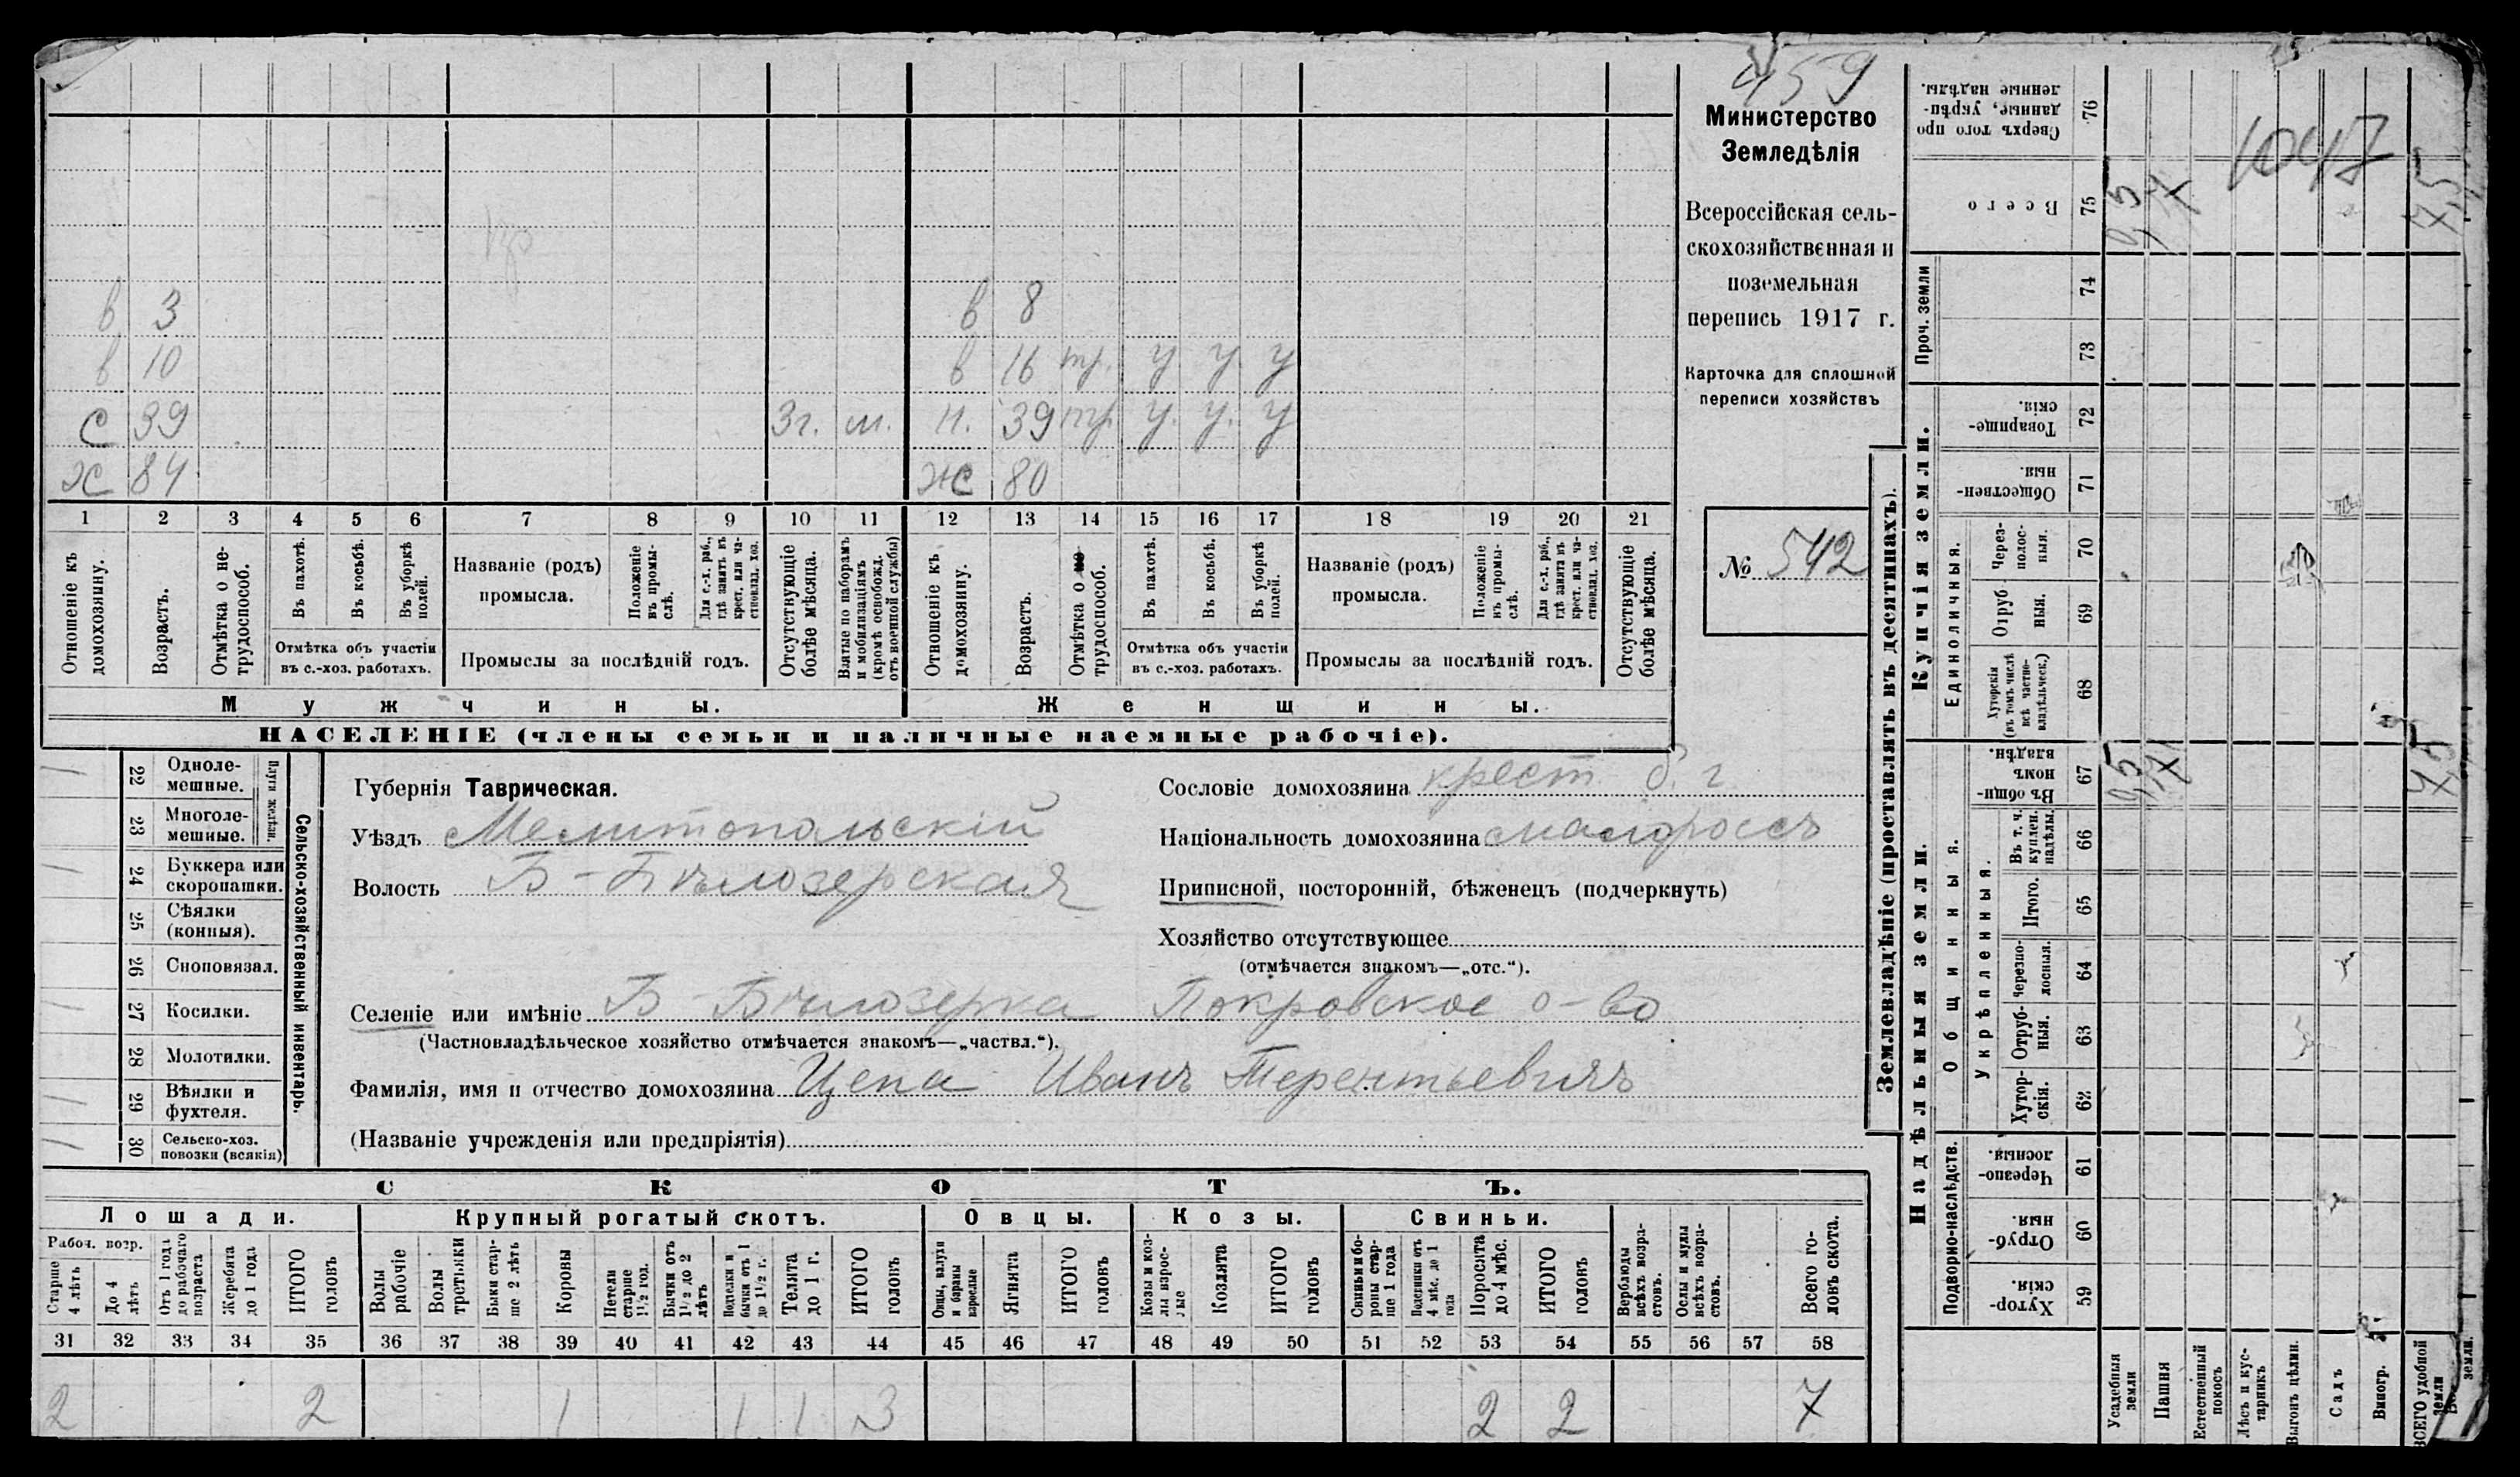 459
Министерство
Земледѣлія
Всероссійская сель-
скохозяйственная и
поземельная
перепись 1917 г.
Карточка для сплошной
переписи хозяйствъ
№ 542
в 3 в 8
в 10 в 16 тр. у у у
с 39 3г. м. н. 39 тр. у. у. у
ж 84 ж 80
1 2 3 4 5 6 7 8 9 10 11 12 13 14 15 16 17 18 19 20 21
Отношеніе къ домохозяину.
Возрастъ.
Отмѣтка о не-трудоспособ.
Въ пахотѣ.
Въ косьбѣ.
Въ уборкѣ полей.
Отмѣтка объ участіи въ с.-хоз. работахъ.
Названіе (родъ) промысла.
Положеніе въ промы-слѣ.
Для с.-х. раб., гдѣ занятъ въ крест. или ча-стновлад. хоз.
Промыслы за послѣдній годъ.
Отсутствующіе болѣе мѣсяца.
Взятые по наборамъ и мобилизаціямъ (кромѣ освобожд. отъ военной службы)
Отношеніе къ домохозяину.
Возрастъ.
Отмѣтка о трудоспособ.
Въ пахотѣ.
Въ косьбѣ.
Въ уборкѣ полей.
Отмѣтка объ участіи въ с.-хоз. работахъ.
Названіе (родъ) промысла.
Положеніе въ промы-слѣ.
Для с.-х. раб., гдѣ занята въ крест. или ча-стновлад. хоз.
Промыслы за послѣдній годъ.
Отсутствующіе болѣе мѣсяца.
Мужчины. Женщины.
НАСЕЛЕНІЕ (члены семьи и наличные наемные рабочіе).
22 Одноле-мешные.
23 Многоле-мешные.
Плуги желѣзн.
24 Буккера или скоропашки.
25 Сѣялки (конныя).
26 Сноповязал.
27 Косилки.
28 Молотилки.
29 Вѣялки и фухтеля.
30 Сельско-хоз. повозки (всякія)
Сельско-хозяйственный инвентарь.
Губернія Таврическая.
Уѣздъ Мелитопольскій
Волость Б-Бѣлозерская
Сословіе домохозяина крест. б. г.
Національность домохозяина малороссъ
Приписной, посторонній, бѣженецъ (подчеркнуть)
Хозяйство отсутствующее
(отмѣчается знакомъ—„отс.“).
Селеніе или имѣніе Б-Бѣлозерка Покровское о-во
(Частновладѣльческое хозяйство отмѣчается знакомъ—„частвл.“).
Фамилія, имя и отчество домохозяина Цепа Иванъ Терентьевичъ
(Названіе учрежденія или предпріятія)
СКОТЪ.
Лошади. Крупный рогатый скотъ. Овцы. Козы. Свиньи.
Рабоч. возр.
Старше 4 лѣтъ
До 4 лѣтъ
Отъ 1 года до рабочаго возраста
Жеребята до 1 года
ИТОГО головъ
Волы рабочіе
Волы третьяки
Быки стар-ше 2 лѣтъ
Коровы
Нетели старше 1½ год.
Бычки отъ 1½ до 2 лѣтъ
Подтелки и бычки отъ 1 до 1½ г.
Телята до 1 г.
ИТОГО головъ
Овцы, валухи и бараны взрослые
Ягнята
ИТОГО головъ
Козы и коз-лы взрос-лые
Козлята
ИТОГО головъ
Свиньи и бо-ровы стар-ше 1 года
Подсвинки отъ 4 мѣс. до 1 года
Поросята до 4 мѣс.
ИТОГО головъ
Верблюды всѣхъ возра-стовъ.
Ослы и мулы всѣхъ возра-стовъ.
Всего го-ловъ скота.
31 32 33 34 35 36 37 38 39 40 41 42 43 44 45 46 47 48 49 50 51 52 53 54 55 56 57 58
2 2 1 1 1 3 2 2 7
Землевладѣніе (проставлять въ десятинахъ).
Надѣльныя земли.
Купчія земли.
Проч. земли
Подворно-наслѣдств.
Общинныя.
Укрѣпленныя.
Единоличныя.
Сверхъ того про-данные, укрѣп-ленные надѣлы. 76
Всего 75 9,5 7
74
73
Товарище-скія. 72
Обществен-ныя. 71
Через-полос-ныя. 70
Отруб-ныя. 69
Хуторскія (въ томъ числѣ всѣ частно-владѣльческ.) 68
Въ общин-номъ владѣн. 67
Въ т. ч. куплен. надѣлы. 66
Итого. 65
Черезпо-лосныя. 64
Отруб-ныя. 63
Хутор-скія. 62
Черезпо-лосныя. 61
Отруб-ныя. 60
Хутор-скія. 59
1047
7,5
Усадебныя земли
Пашня
Естественный покосъ
Лѣсъ и кус-тарникъ
Выгонъ цѣлин.
Садъ
Виногр.
ВСЕГО удобной земли
земли.